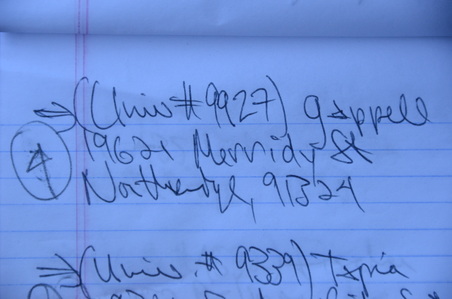 →(Univ #9927) Gappell
4 19621 Merridy St
Northridge, 91324
→(Univ. # 9339) Tapia